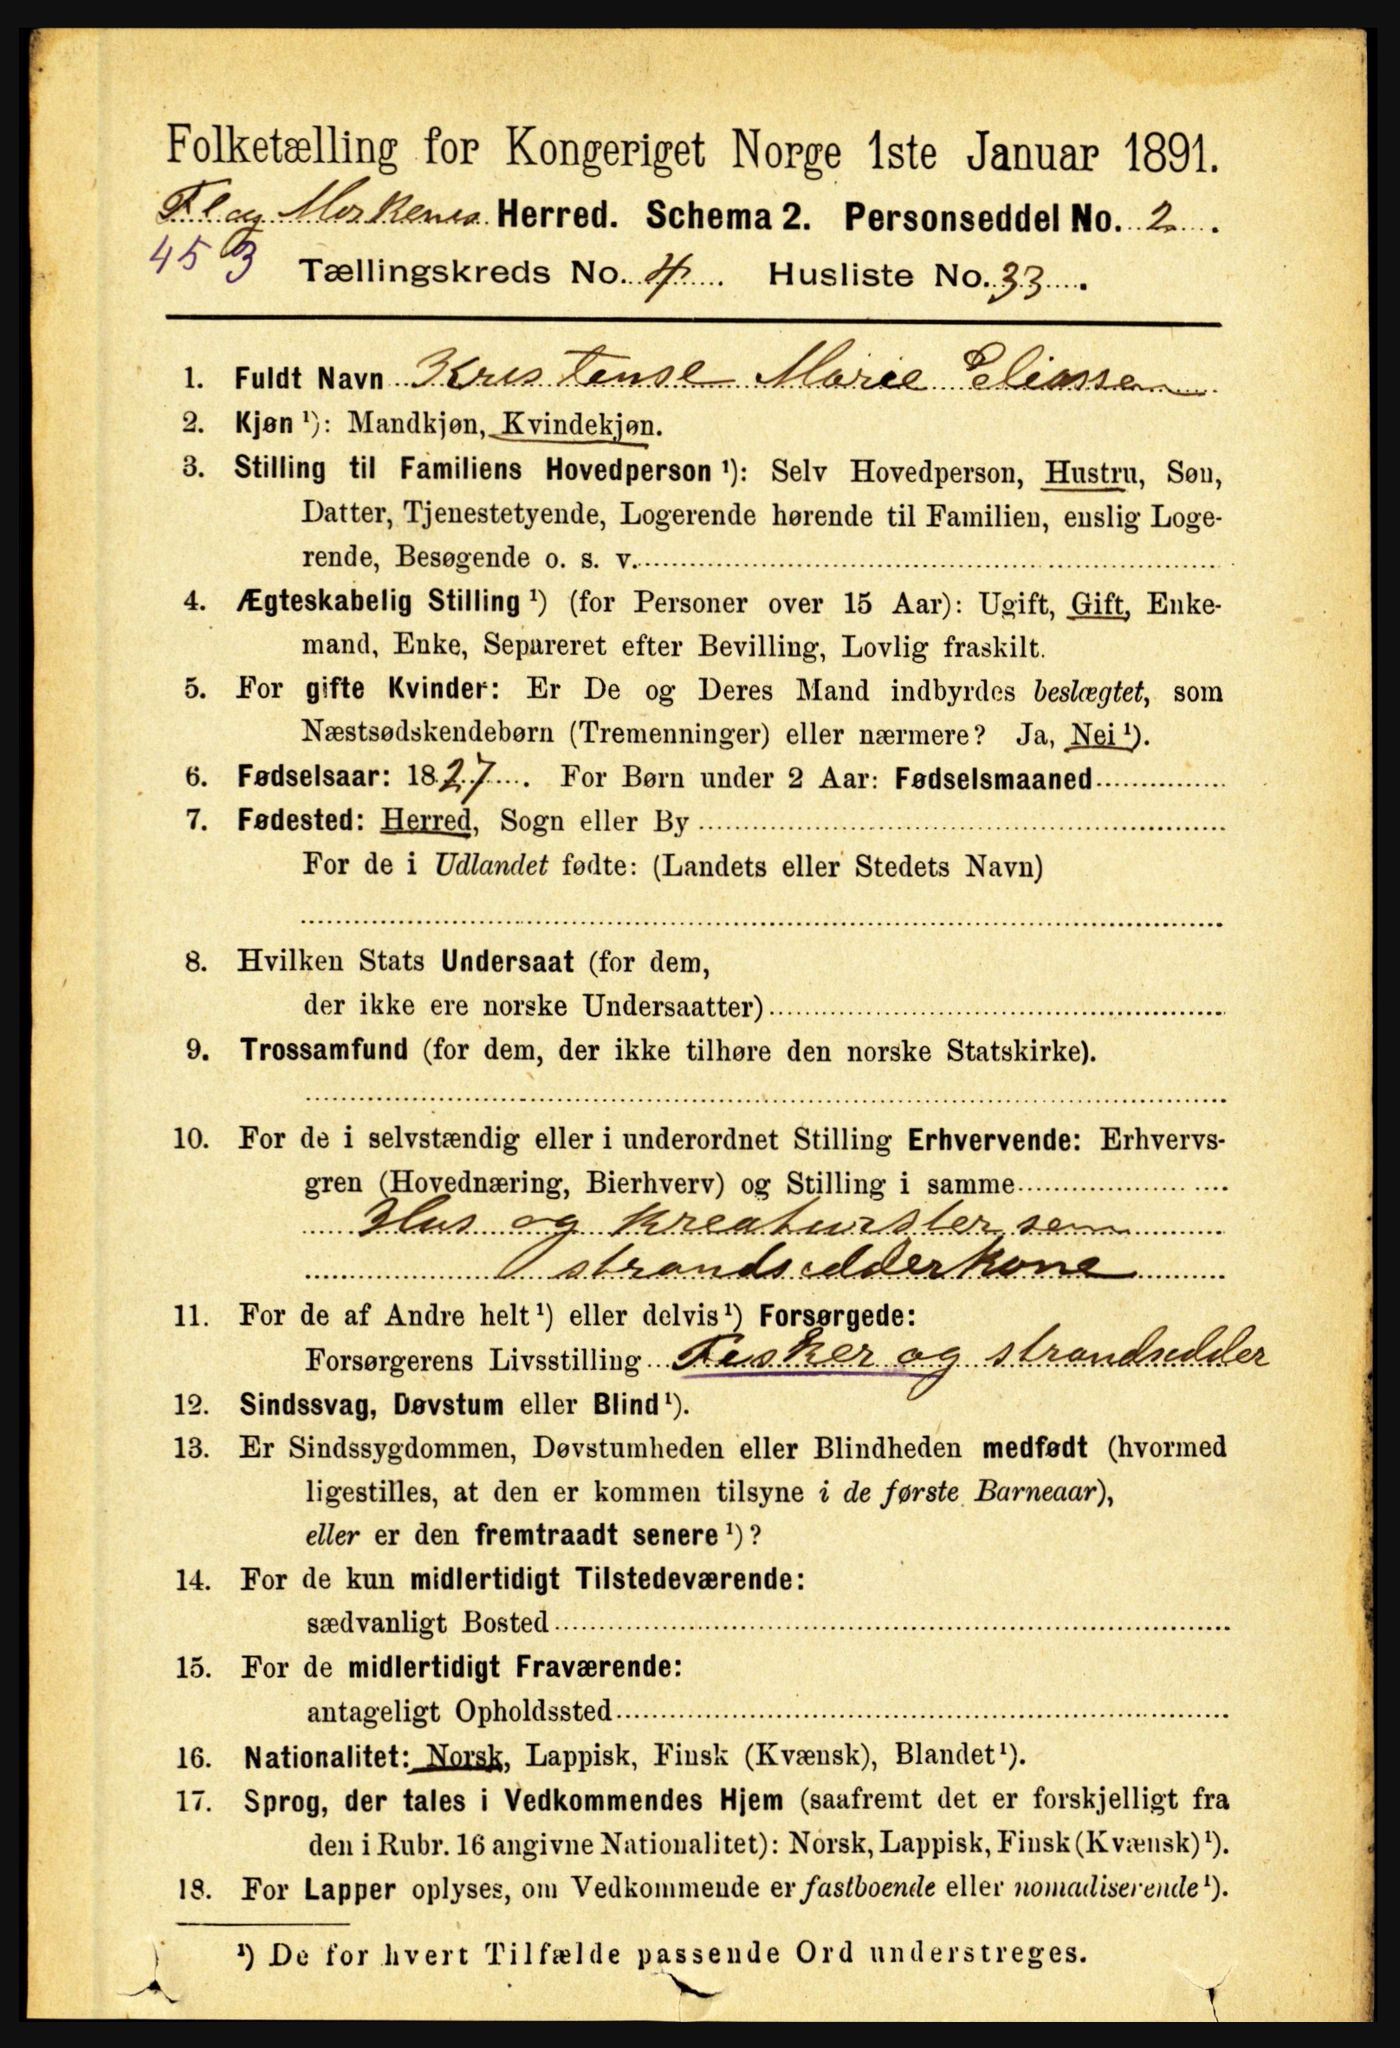 Folketælling for Kongeriget Norge 1ste Januar 1891.
Fl og Moskenes Herred. Schema 2. Personseddel No. 2.
453 Tællingskreds No. 4. Husliste No. 33.
1. Fuldt Navn Kristense Marie Eliassen
2. Kjøn ¹): Mandkjøn, Kvindekjøn.
3. Stilling til Familiens Hovedperson ¹): Selv Hovedperson, Hustru, Søn,
Datter, Tjenestetyende, Logerende hørende til Familien, enslig Loge-
rende, Besøgende o. s. v.
4. Ægteskabelig Stilling ¹) (for Personer over 15 Aar): Ugift, Gift, Enke-
mand, Enke, Separeret efter Bevilling, Lovlig fraskilt.
5. For gifte Kvinder: Er De og Deres Mand indbyrdes beslægtet, som
Næstsødskendebørn (Tremenninger) eller nærmere? Ja, Nei ¹).
6. Fødselsaar: 1827. For Børn under 2 Aar: Fødselsmaaned
7. Fødested: Herred, Sogn eller By
For de i Udlandet fødte: (Landets eller Stedets Navn)
8. Hvilken Stats Undersaat (for dem,
der ikke ere norske Undersaatter)
9. Trossamfund (for dem, der ikke tilhøre den norske Statskirke).
10. For de i selvstændig eller i underordnet Stilling Erhvervende: Erhvervs-
gren (Hovednæring, Bierhverv) og Stilling i samme
Hus og kreaturster sem
strandsidderkone
11. For de af Andre helt ¹) eller delvis ¹) Forsørgede:
Forsørgerens Livsstilling Fisker og strandsidder
12. Sindssvag, Døvstum eller Blind ¹).
13. Er Sindssygdommen, Døvstumheden eller Blindheden medfødt (hvormed
ligestilles, at den er kommen tilsyne i de første Barneaar),
eller er den fremtraadt senere ¹)?
14. For de kun midlertidigt Tilstedeværende:
sædvanligt Bosted
15. For de midlertidigt Fraværende:
antageligt Opholdssted
16. Nationalitet: Norsk, Lappisk, Finsk (Kvænsk), Blandet ¹).
17. Sprog, der tales i Vedkommendes Hjem (saafremt det er forskjelligt fra
den i Rubr. 16 angivne Nationalitet): Norsk, Lappisk, Finsk (Kvænsk) ¹).
18. For Lapper oplyses, om Vedkommende er fastboende eller nomadiserende ¹).
¹) De for hvert Tilfælde passende Ord understreges.